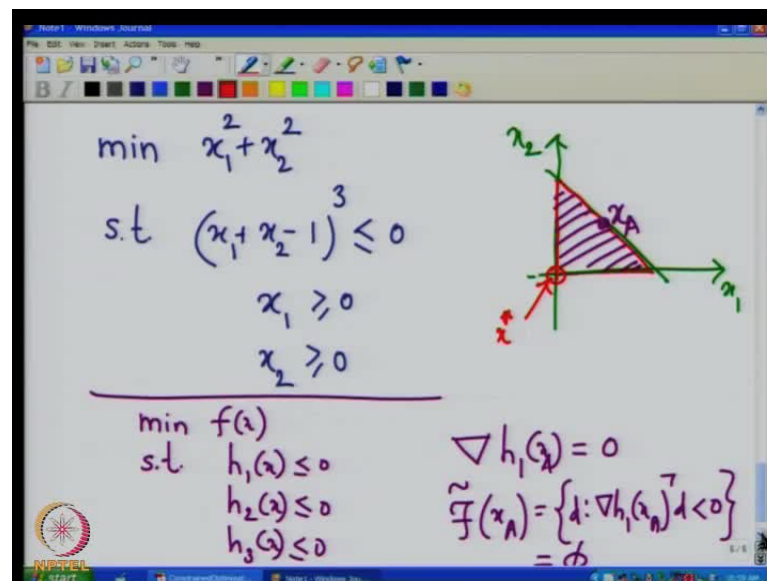 Note1 - Windows Journal
File Edit View Insert Actions Tools Help
B I
min x₁² + x₂²
s.t (x₁ + x₂ - 1)³ ≤ 0
x₁ ≥ 0
x₂ ≥ 0
x₂
x_A
x₁
x*
min f(x)
s.t. h₁(x) ≤ 0
h₂(x) ≤ 0
h₃(x) ≤ 0
∇h₁(x_A) = 0
F̃(x_A) = {d: ∇h₁(x_A)ᵀd < 0}
= ϕ
NPTEL
5/5
start
Note1 - Windows Jou...